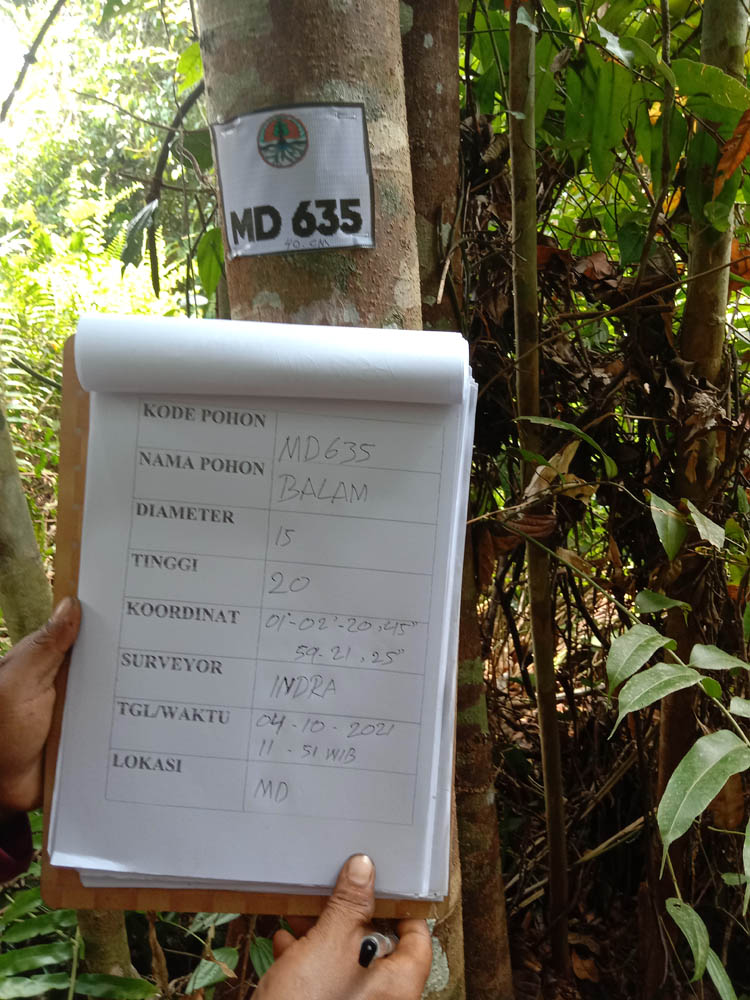 MD 635
40. CM
KODE POHON
MD635
NAMA POHON
BALAM
DIAMETER
15
TINGGI
20
KOORDINAT
01°-02'-20,45"
59-21,25"
SURVEYOR
INDRA
TGL/WAKTU
04-10-2021
11-51 WIB
LOKASI
MD